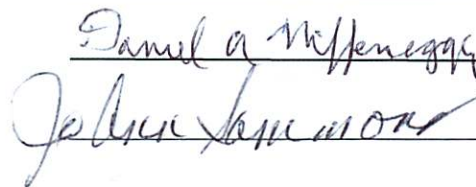 Daniel A Niffenegger
JoAnn Sammons